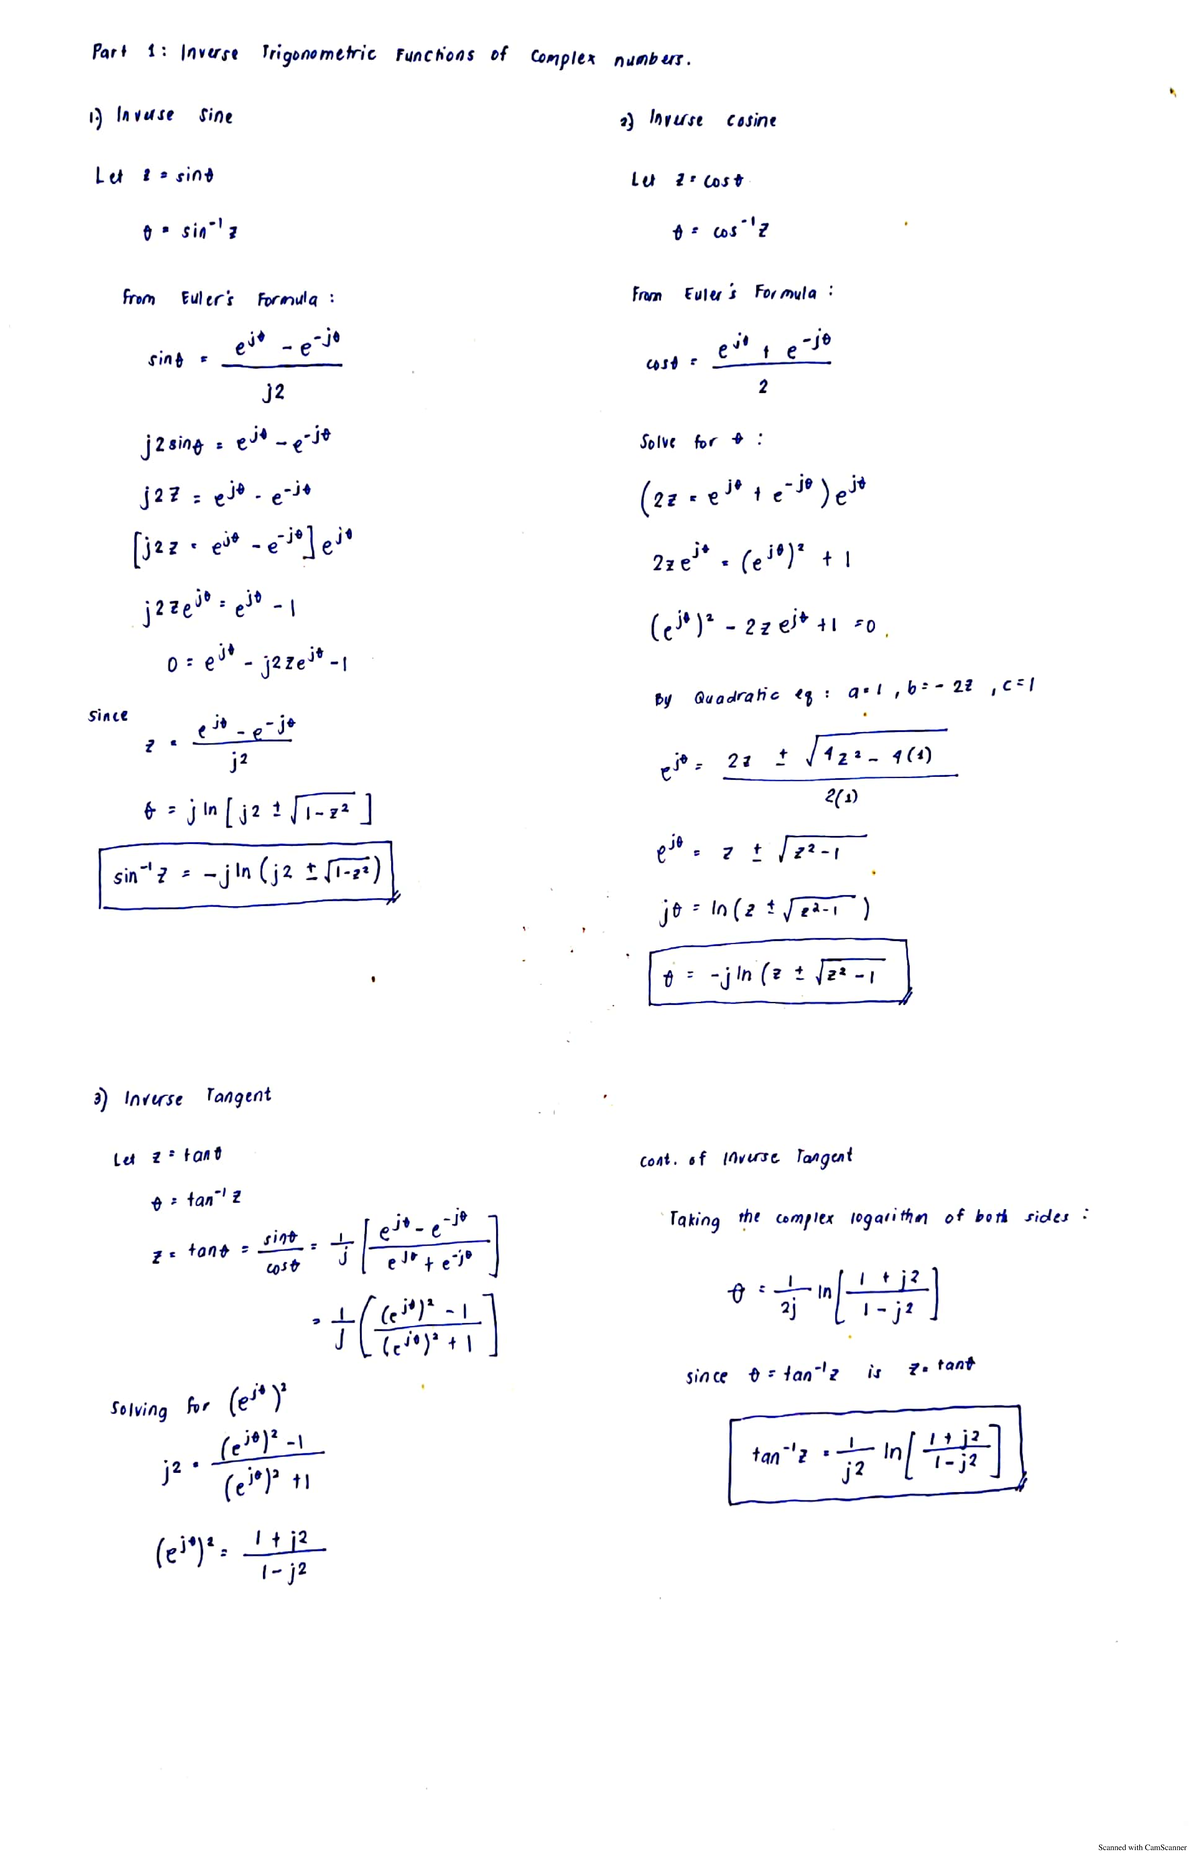 Part 1: Inverse Trigonometric Functions of Complex numbers.
1.) Inverse Sine
Let z = sinθ
θ = sin⁻¹z
From Euler's Formula :
sinθ = (e^jθ - e^-jθ) / j2
j2sinθ = e^jθ - e^-jθ
j2z = e^jθ - e^-jθ
[j2z = e^jθ - e^-jθ] e^jθ
j2ze^jθ = e^jθ - 1
0 = e^jθ - j2ze^jθ - 1
since
z = (e^jθ - e^-jθ) / j2
θ = j ln [ jz ± √(1-z²) ]
sin⁻¹z = -j ln (jz ± √(1-z²))
2) Inverse Cosine
Let z = cosθ
θ = cos⁻¹z
From Euler's Formula :
cosθ = (e^jθ + e^-jθ) / 2
Solve for θ :
(2z = e^jθ + e^-jθ) e^jθ
2ze^jθ = (e^jθ)² + 1
(e^jθ)² - 2ze^jθ + 1 = 0.
By Quadratic eq : a=1, b=-2z, c=1
e^jθ = (2z ± √(4z² - 4(1))) / 2(1)
e^jθ = z ± √(z²-1)
jθ = ln(z ± √(z²-1))
θ = -j ln (z ± √(z²-1)
3) Inverse Tangent
Let z = tanθ
θ = tan⁻¹z
z = tanθ = sinθ/cosθ = 1/j [(e^jθ - e^-jθ) / (e^jθ + e^-jθ)]
= 1/j [((e^jθ)² - 1) / ((e^jθ)² + 1)]
Solving for (e^jθ)²
jz = ((e^jθ)² - 1) / ((e^jθ)² + 1)
(e^jθ)² = (1 + jz) / (1 - jz)
Cont. of Inverse Tangent
Taking the complex logarithm of both sides :
θ = 1/2j ln [(1 + jz) / (1 - jz)]
since θ = tan⁻¹z is z = tanθ
tan⁻¹z = 1/j2 ln [(1 + jz) / (1 - jz)]
Scanned with CamScanner